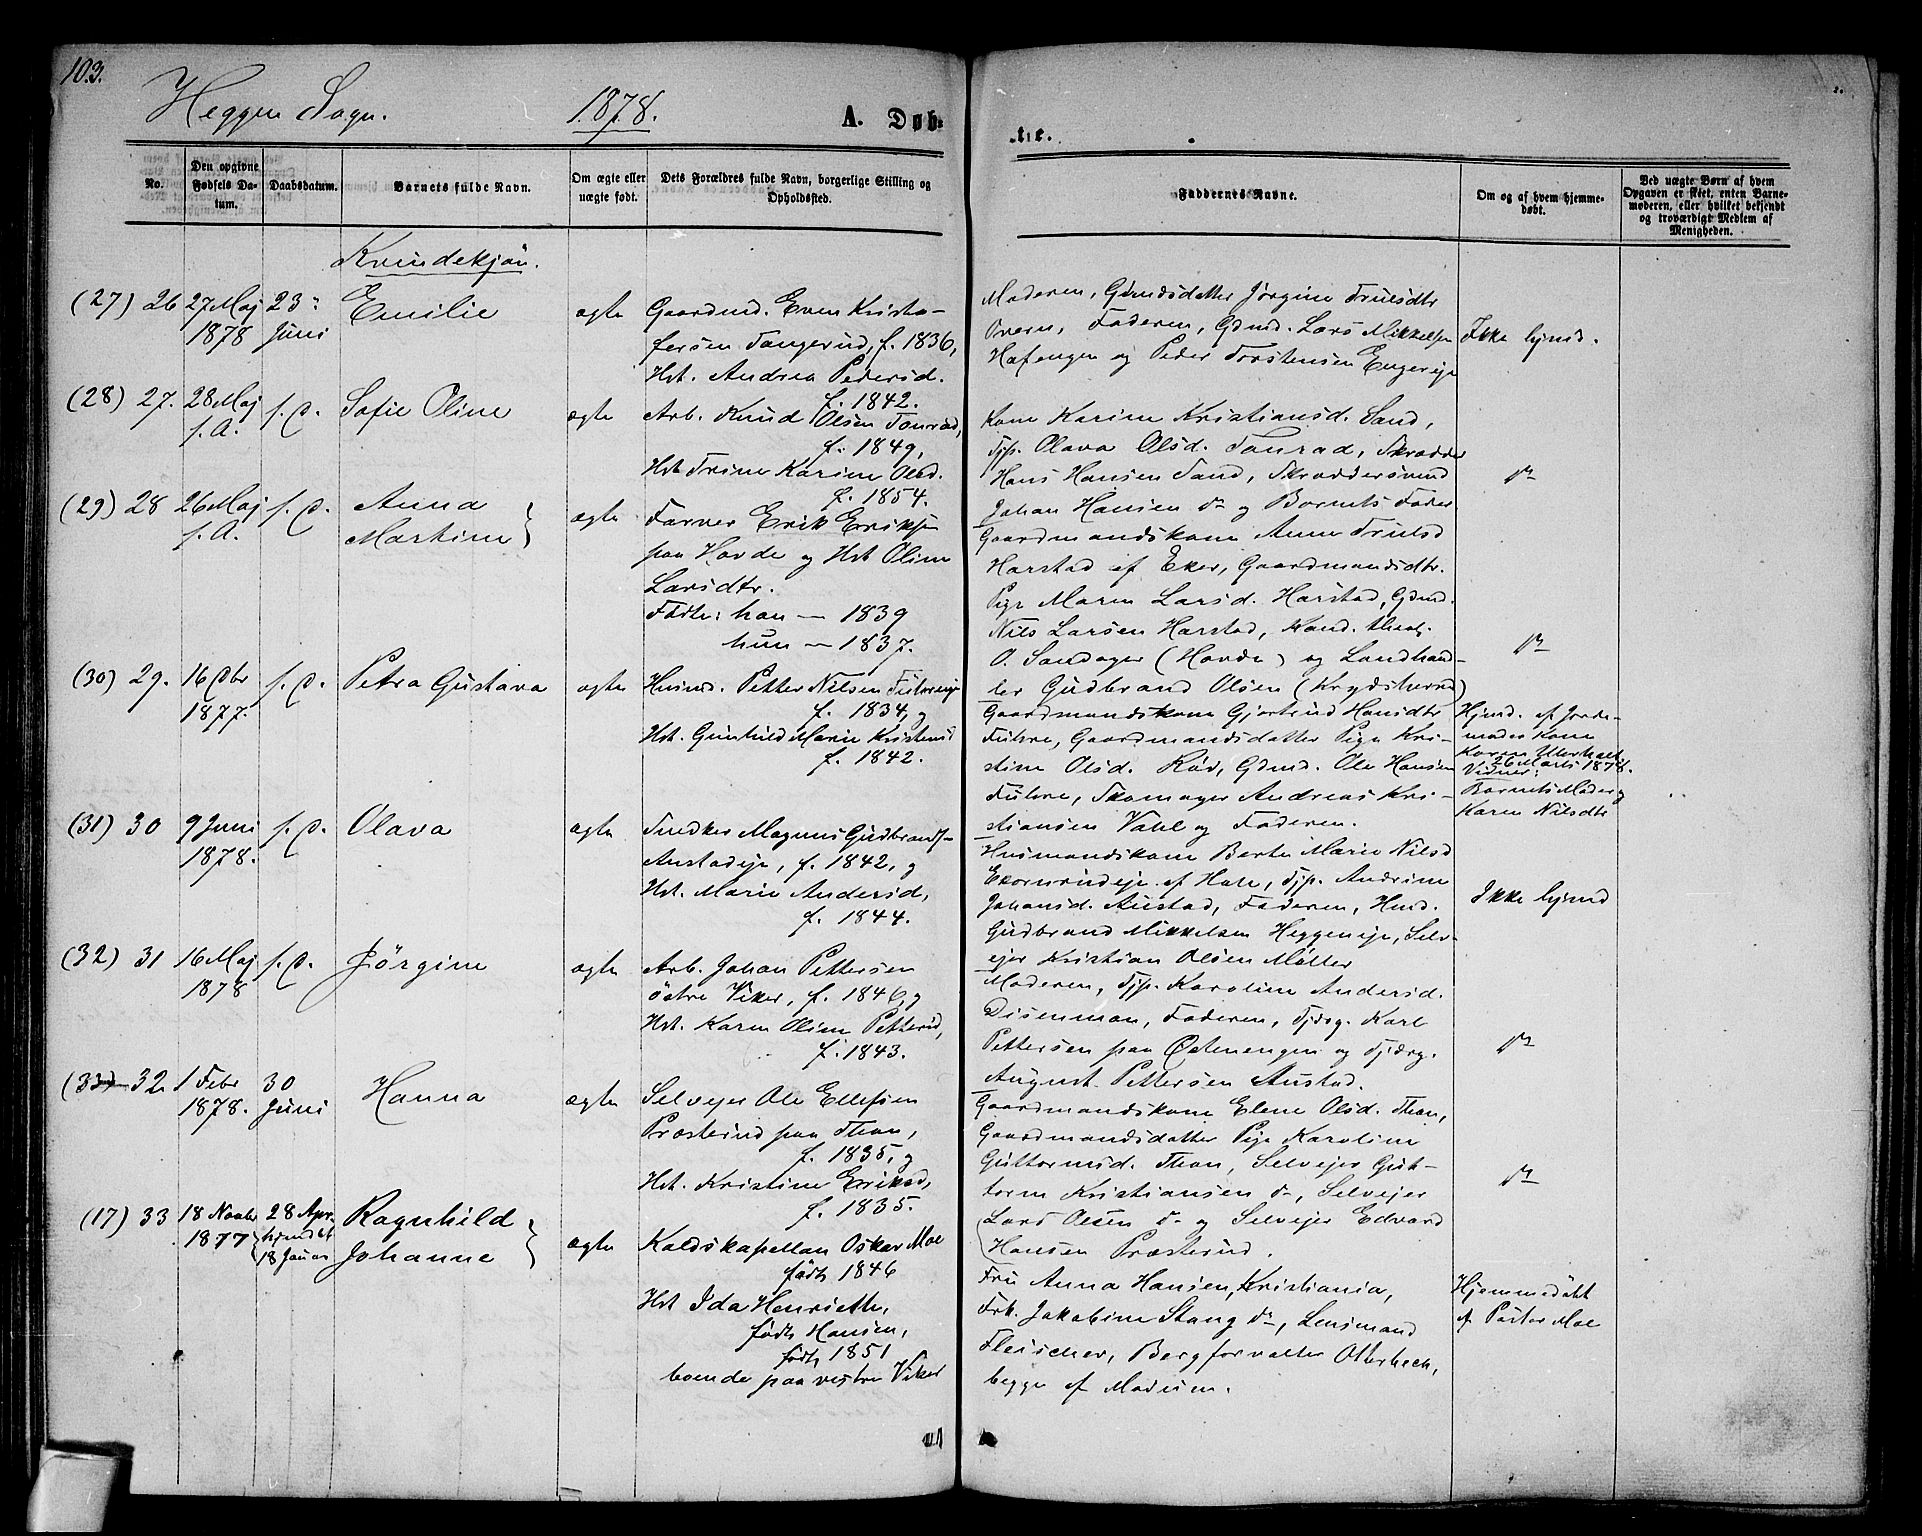 103.
Heggen Sogn. 1878. A. Døb-
te.
No.
Den opgivne Fødsels Da-
tum.
Daabsdatum.
Barnets fulde Navn.
Om ægte eller
uægte født.
Dets Forældres fulde Navn, borgerlige Stilling og
Opholdssted.
Faddernes Navne.
Om og af hvem hjemme-
døbt.
Ved uægte Børn af hvem
Opgaven er skeet, enten Barne-
moderen, eller hvilket bekjendt
og troværdigt Medlem af
Menigheden.
Kvindekjøn.
(27) 26 27 Maj 1878 23 Juni Emilie ægte
Gaardmd. Even Kristo-
fersen Tangerud, f. 1836,
Hst. Andrea Pedersd.
f. 1842.
Moderen, Gdmdsdatter Jørgine Trulsdtr
Overn, Faderen, Gdmd. Lars Mikkelsen
Hafengen og Peder Torstensen Engereje
Ikke hjmd.
(28) 27. 28 Maj s. A. s. D. Sofie Oline ægte
Arb. Knud Olsen Tanrad,
f. 1849,
Hst Trine Karine Olsd.
f. 1854.
Kone Karine Kristiansd. Sand,
Tjp. Olava Olsd. Tanrad, Skrædder
Hans Hansen Sand, Skræddersvend
Johan Hansen do og Barnets Fader
do
(29) 28 26 Maj s. A. s. D. Anna
Martine } ægte
Farver Erik Eriksen
paa Hovde og Hst Oline
Larsdtr.
Fødte: han — 1839
hun — 1837.
Gaardmandskone Anne Trulsd
Harstad af Eker, Gaardmandsdtr.
Pige Maren Larsd. Harstad, Gdmd.
Nils Larsen Harstad, Kand. theol.
O. Sandager (Hovde) og Landhand-
ler Gudbrand Olsen (Krydsherred)
do
(30) 29. 16 Dbr 1877. s. D. Petra Gustava ægte
Husmd. Petter Nilsen
f. 1834, og
Hst. Gunhild Marie Kristensd
f. 1842.
Gaardmandskone Gjertrud Hansdtr
Fulvre, Gaardmandsdatter Pige Kri-
stine Olsd. Køv, Gdmd. Ole Hansen
Fulvre, Skomager Andreas Kri-
stiansen Vahl og Faderen.
Hjmd. af Jorde-
moder Kone
Karen
26 Marts 1878.
Vidner:
Barnets Moder og
Karen Nilsdtr
(31) 30 9 Juni 1878. s. D. Olava ægte
Snedker Magnus Gudbrands-
Austadeje, f. 1842, og
Hst. Marie Andersd,
f. 1844.
Husmandskone Berte Marie Nilsd
Ekornrudeje af Hole, Tjp. Andrine
Johansd. Austad, Faderen, Hmd.
Gudbrand Mikkelsen Heggeneje, Selv-
ejer Kristian Olsen Møller
Ikke hjmd
(32) 31 16 Maj 1878 s. D. Jörgine ægte
Arb. Johan Pettersen
östre Viker, f. 1846, og
Hst. Karen Olsen Petterud,
f. 1843.
Moderen, Tjp. Karoline Andersd.
Disenman, Faderen, Tjdrg. Karl
Pettersen paa Østmengen og Tjdrg.
August Pettersen Austad.
do
(33) 32 1 Febr 1878. 30 Juni Hanna ægte
Selvejer Ole Ellefsen
Præsterud paa Thon,
f. 1835, og
Hst. Kristine Eriksd,
f. 1835.
Gaardmandskone Elene Olsd. Thon,
Gaardmandsdatter Pige Karoline
Guttormsd. Thon, Selvejer Gut-
torm Kristiansen do, Selvejer
Lars Olsen do og Selvejer Edvard
Hansen Præsterud.
do
(17) 33 18 Novbr 1877 28 Apr. hjmdöbt 18 Januar Ragnhild
Johanne } ægte
Kaldskapellan Oskar Moe
født 1846
Hst Ida Henriette,
født Hansen,
født 1851
boende paa vestre Viker
Fru Anna Hansen, Kristiania,
Frk. Jakobine Stang do, Lensmand
Fleischer, Bergforvalter Otterbech,
begge af Modum.
Hjemmedöbt
af Pastor Moe